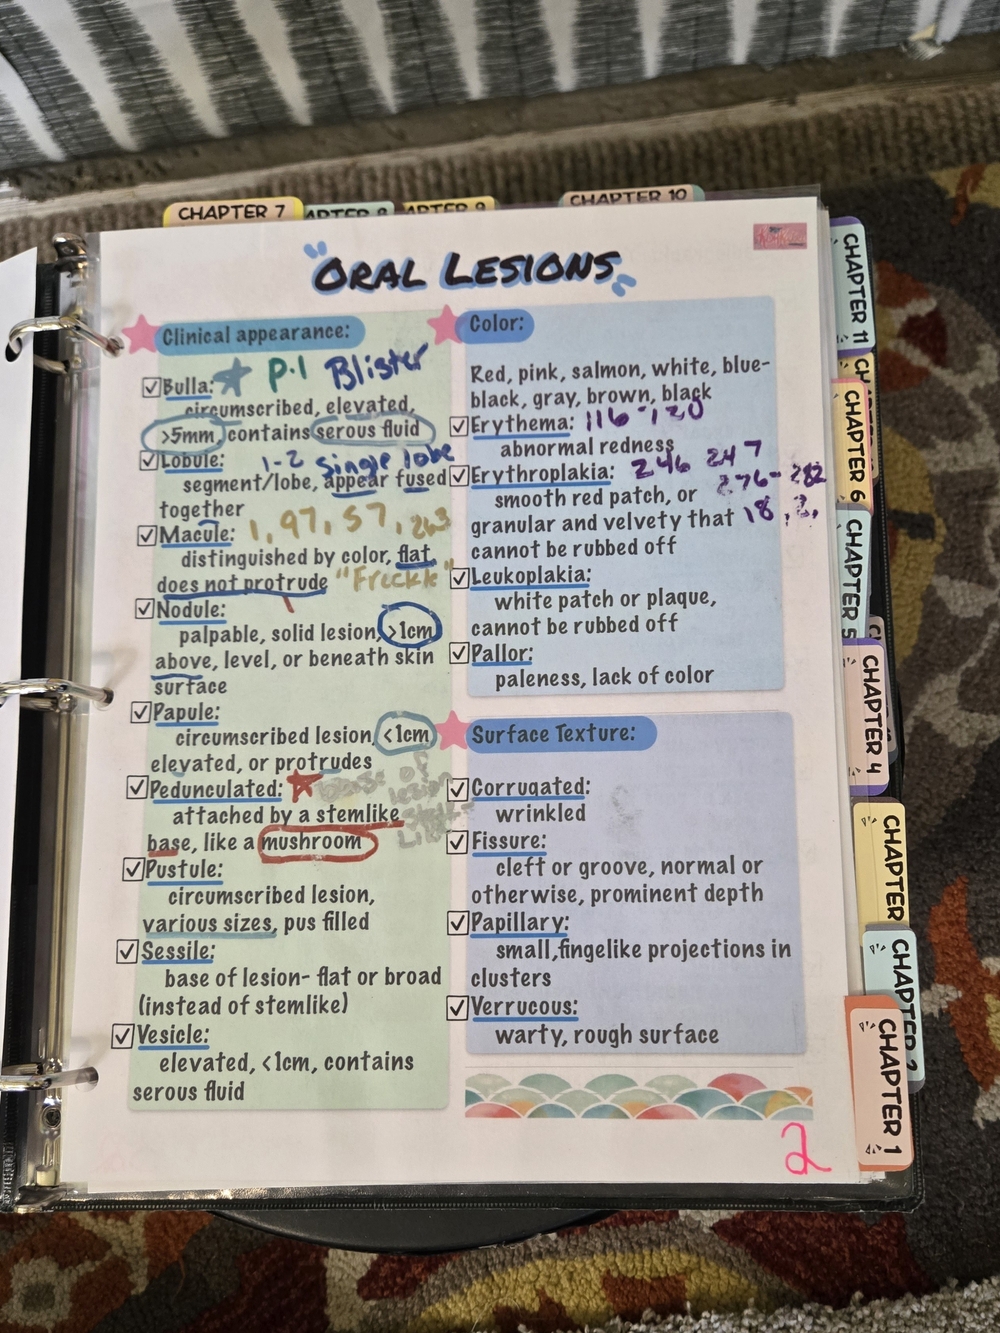 CHAPTER 7
CHAPTER 8
CHAPTER 9
CHAPTER 10
"ORAL LESIONS"
Clinical appearance:
Bulla: P.1 Blister
circumscribed, elevated,
>5mm, contains serous fluid
Lobule: 1-2 Single lobe
segment/lobe, appear fused
together
Macule: 1, 97, 57, 263
distinguished by color, flat,
does not protrude "Freckle"
Nodule:
palpable, solid lesion, >1cm
above, level, or beneath skin
surface
Papule:
circumscribed lesion, <1cm
elevated, or protrudes
Pedunculated: Base of
lesion
attached by a stemlike
base, like a mushroom
Pustule:
circumscribed lesion,
various sizes, pus filled
Sessile:
base of lesion- flat or broad
(instead of stemlike)
Vesicle:
elevated, <1cm, contains
serous fluid
Color:
Red, pink, salmon, white, blue-
black, gray, brown, black
Erythema: 116-120
abnormal redness
Erythroplakia: 246 247
276-282
smooth red patch, or
granular and velvety that 18
cannot be rubbed off
Leukoplakia:
white patch or plaque,
cannot be rubbed off
Pallor:
paleness, lack of color
Surface Texture:
Corrugated:
wrinkled
Fissure:
cleft or groove, normal or
otherwise, prominent depth
Papillary:
small,fingelike projections in
clusters
Verrucous:
warty, rough surface
2
CHAPTER 11
CHAPTER 6
CHAPTER 5
CHAPTER 4
CHAPTER
CHAPTER 2
CHAPTER 1